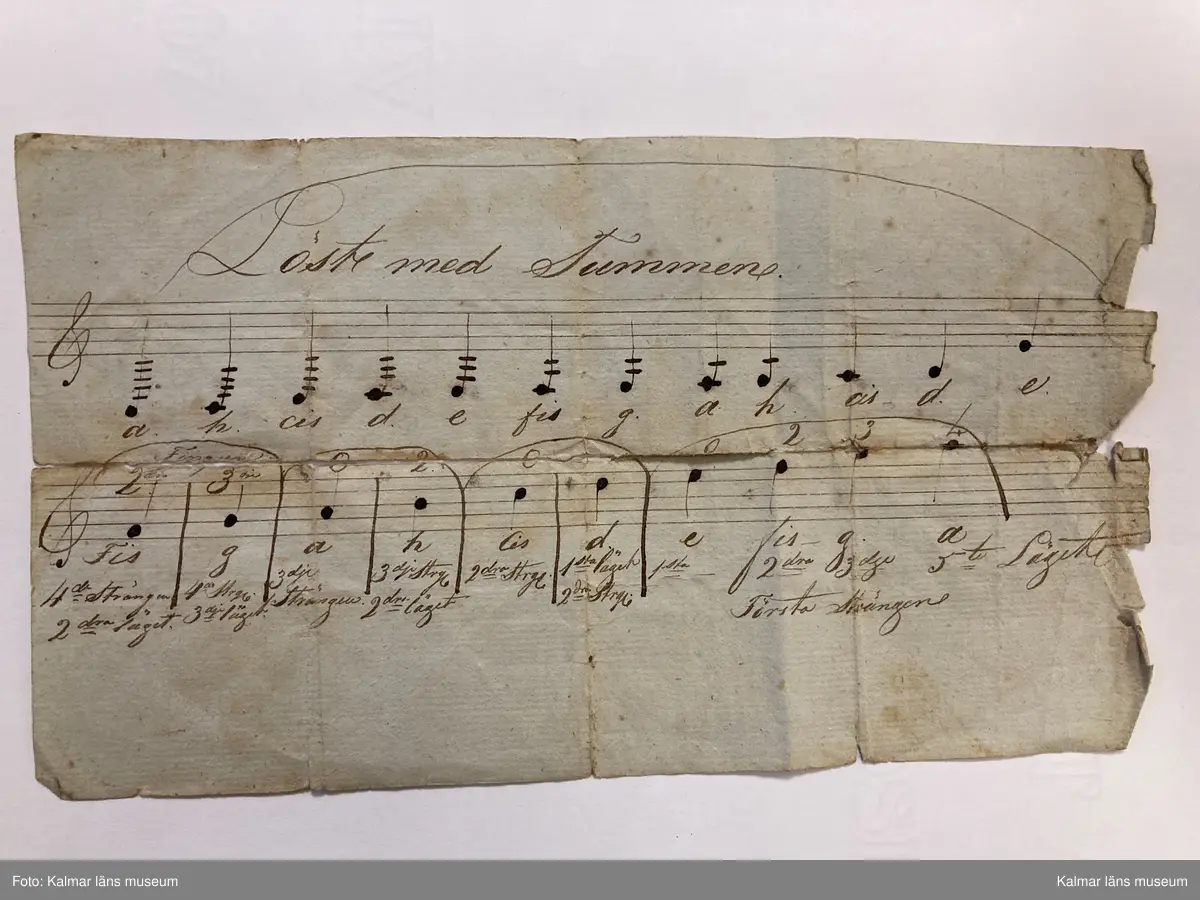 Löste med Tummen.
a. h. cis d. e fis g. a h. cis d. e.
Fingren
2dra 3dje 0 2. 0 0 2 3
Fis g a h cis d e fis g. a 5te Läget
4de Strängen 4de Strgn. 3dje Strängen. 3dje Strgn. 2dra Strgn. 1sta Läget 1sta 2dra 3dje
2dra Läget. 3dje Läget. 2dra Läget 2dra Strgn. Första Strängen
Foto: Kalmar läns museum
Kalmar läns museum